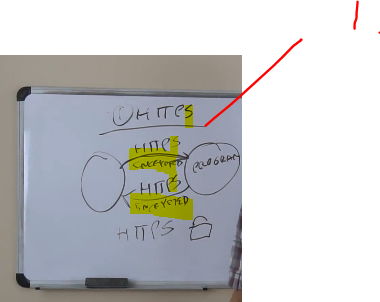 ① HTTPS
HTTPS
ENCRYPTED
HTTPS
ENCRYPTED
HTTPS